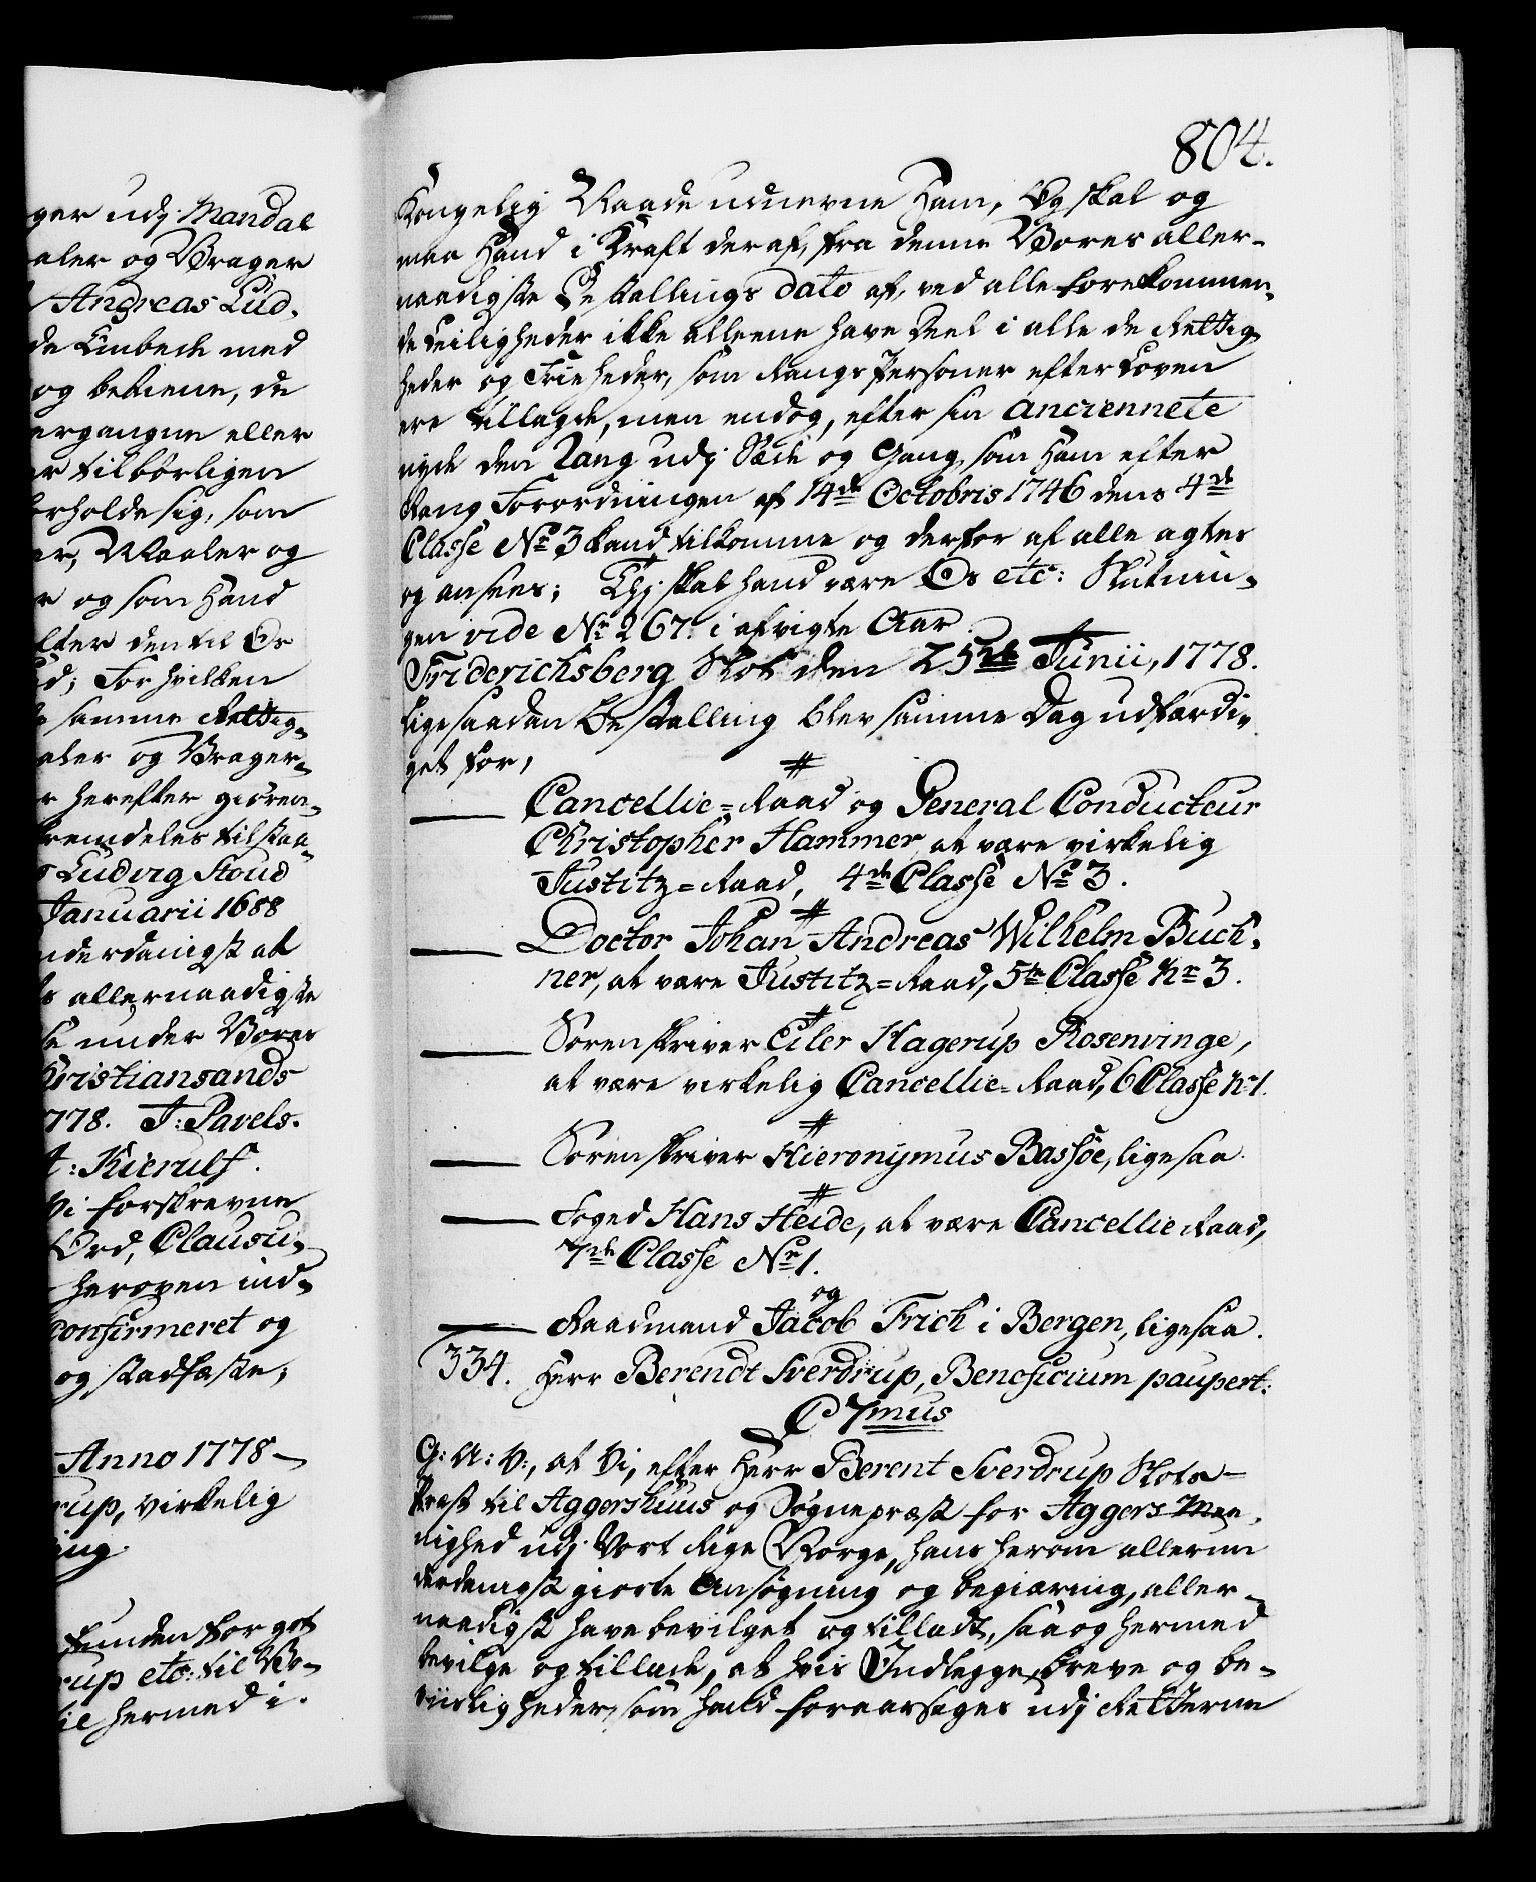 ger udj Mandal
aler og Brager
Andreas Lud-
de Linbech med
og betiene, de
ergangne eller
er tilbørligen
erholde sig, som
er, Maaler og
r og som Hand
efter den til Os
ed; For hvilken
samme Rettig-
aler og Brager-
r herefter gioren-
fremdeles tilstaa-
s Ludvig Stoud
Januarii 1688
nderdanigst at
s allernaadigste
se under Vores
Christiansands
1778. F: Pavels.
t: Kierulf.
Vi forskrevne
Ord, Clausu-
heroven ind-
Confirmeret og
og stadfæste;
Anno 1778 -
rup, virkelig
ing.
funden for got
rup etc: til Vo-
til hermed i.
804.
Kongelig Naade udnevne Ham, Og skal og
maa Hand i Kraft deraf, fra denne Vores aller-
naadigste Bestallings dato af, ved alle forekommen-
de Leiligheder ikke alleene have Deel i alle de Rettig-
heder og Friheder, som Rangs Personer efter Loven
ere tillagde, men endog, efter sin anciennete
nyde den Rang udj Sæde og Gang, som Ham efter
Rang Forordningen af 14de Octobris 1746 dens 4de
Classe No 3 kand tilkomme og derfor af alle agtes
og ansees; Thj skal hand være Os etc: Slutnin-
gen vide Nr 267. i afvigte Aar.
Friderichsberg Slot den 25de Junii, 1778.
Ligesaadan Bestalling blev samme Dag udfærdi-
get for,
Cancellie-Raad og General Conducteur
Christopher Hammer, at være virkelig
Justitz-Raad, 4de Classe No 3.
Doctor Johan Andreas Wilhelm Buch-
ner, at være Justitz-Raad, 5te Classe nr 3.
Sorenskriver Eiler Hagerup Rosenvinge,
at være virkelig Cancellie-Raad, 6 Classe nr 1.
Sorenskriver Hieronymus Bassøe, ligesaa.
Foged Hans Heide, at være Cancellie Raad,
7de Classe Nr 1.
og
Raadmand Jacob Frich i Bergen, ligesaa.
334. Herr Berendt Sverdrup, Beneficium paupert:
C 7mus
G: A: V:, at Vi, efter Herr Berent Sverdrup Slots-
Præst til Aggershuus og Sognepræst for Aggers Me-
nighed udj Vort Rige Norge, hans herom allerun
derdanigst giorte Ansøgning og begiæring, aller-
naadigst have bevilget og tilladt, saa og hermed
bevilge og tillade, at hvis Indlegge, breve og be-
viisligheder, som hand foraarsages udj Retterne